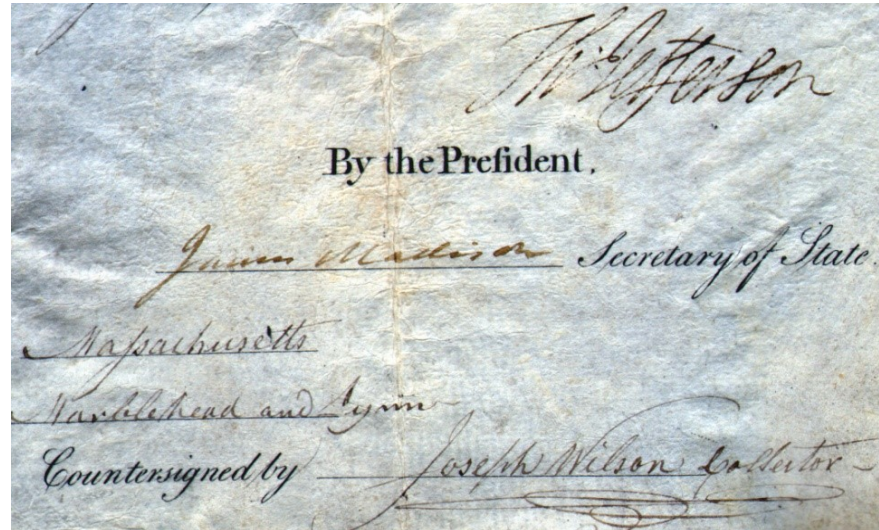 Th: Jefferson
By the Preſident.
James Madison Secretary of State.
Maſsachusetts
Marblehead and Lynn
Countersigned by Joseph Wilson Collector